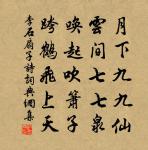 月下九九仙
雲間七七泉
喚起吹簫子
跨鶴飛上天
李石扇子詩詞典網集